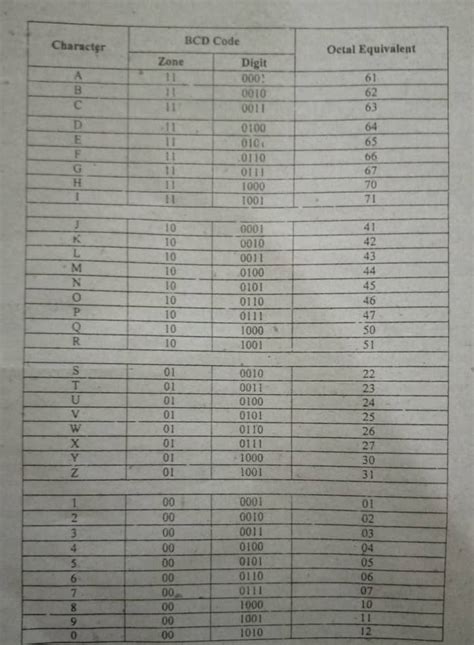 Character BCD Code Octal Equivalent
Zone Digit
A 11 0001 61
B 11 0010 62
C 11 0011 63
D 11 0100 64
E 11 0101 65
F 11 0110 66
G 11 0111 67
H 11 1000 70
I 11 1001 71
J 10 0001 41
K 10 0010 42
L 10 0011 43
M 10 0100 44
N 10 0101 45
O 10 0110 46
P 10 0111 47
Q 10 1000 50
R 10 1001 51
S 01 0010 22
T 01 0011 23
U 01 0100 24
V 01 0101 25
W 01 0110 26
X 01 0111 27
Y 01 1000 30
Z 01 1001 31
1 00 0001 01
2 00 0010 02
3 00 0011 03
4 00 0100 04
5 00 0101 05
6 00 0110 06
7 00 0111 07
8 00 1000 10
9 00 1001 11
0 00 1010 12